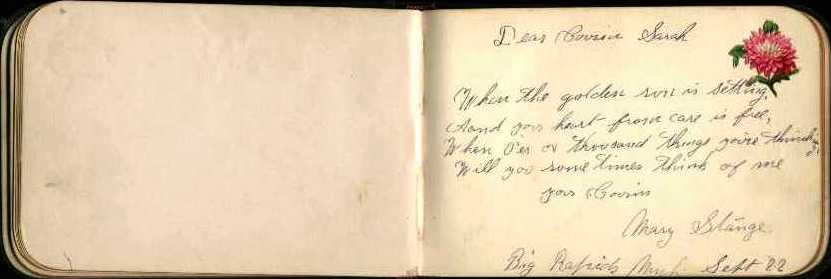 Dear Cousin Sarah
When the golden sun is setting,
And your heart from care is free,
When o'er a thousand things you're thinking,
Will you sometimes think of me
your Cousin
Mary Stange
Big Rapids Mich Sept 22